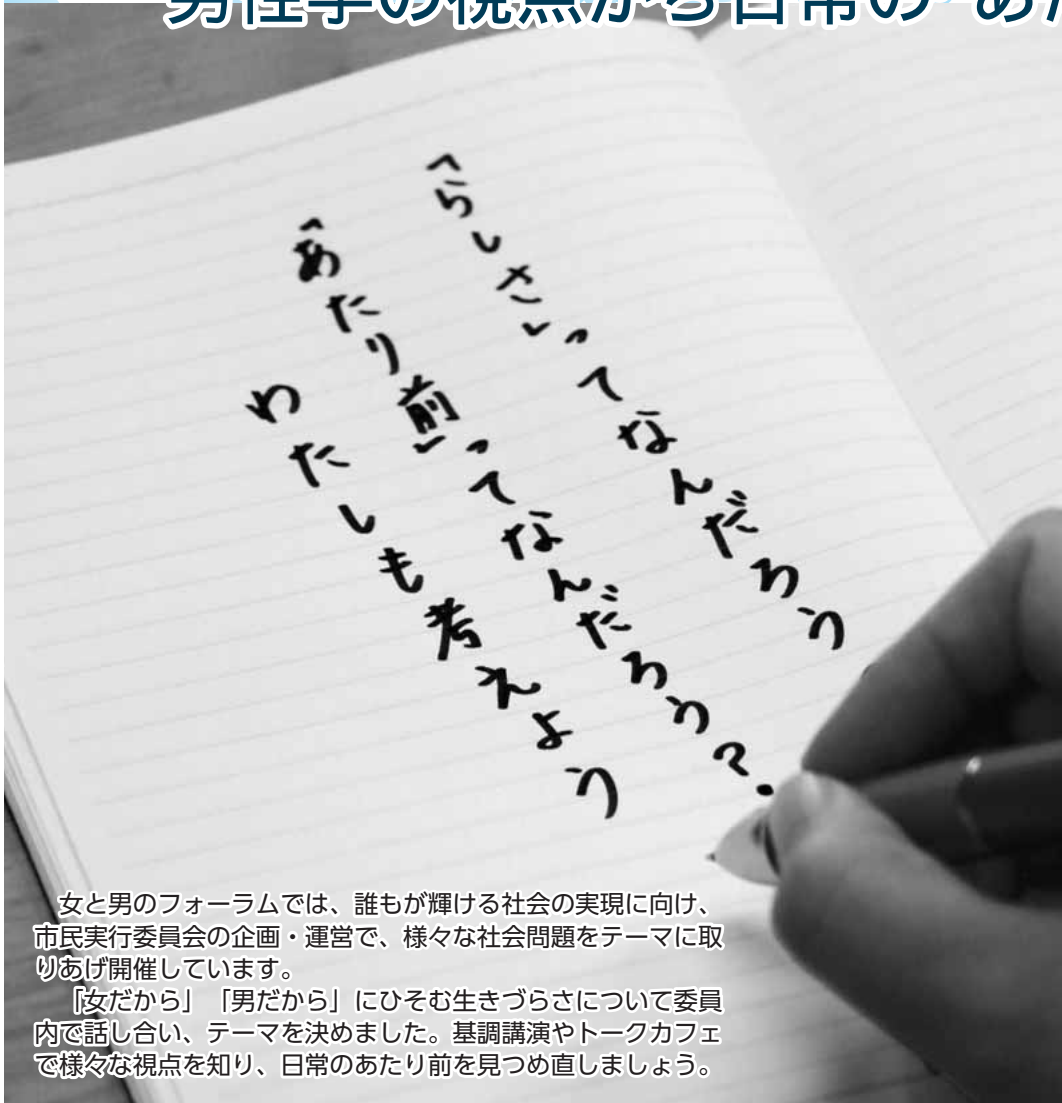 男性学の視点から日常の あた
「らしさ」ってなんだろう
「あたり前」ってなんだろう？
わたしも考えよう
女と男のフォーラムでは、誰もが輝ける社会の実現に向け、
市民実行委員会の企画・運営で、様々な社会問題をテーマに取
りあげ開催しています。
「女だから」「男だから」にひそむ生きづらさについて委員
内で話し合い、テーマを決めました。基調講演やトークカフェ
で様々な視点を知り、日常のあたり前を見つめ直しましょう。